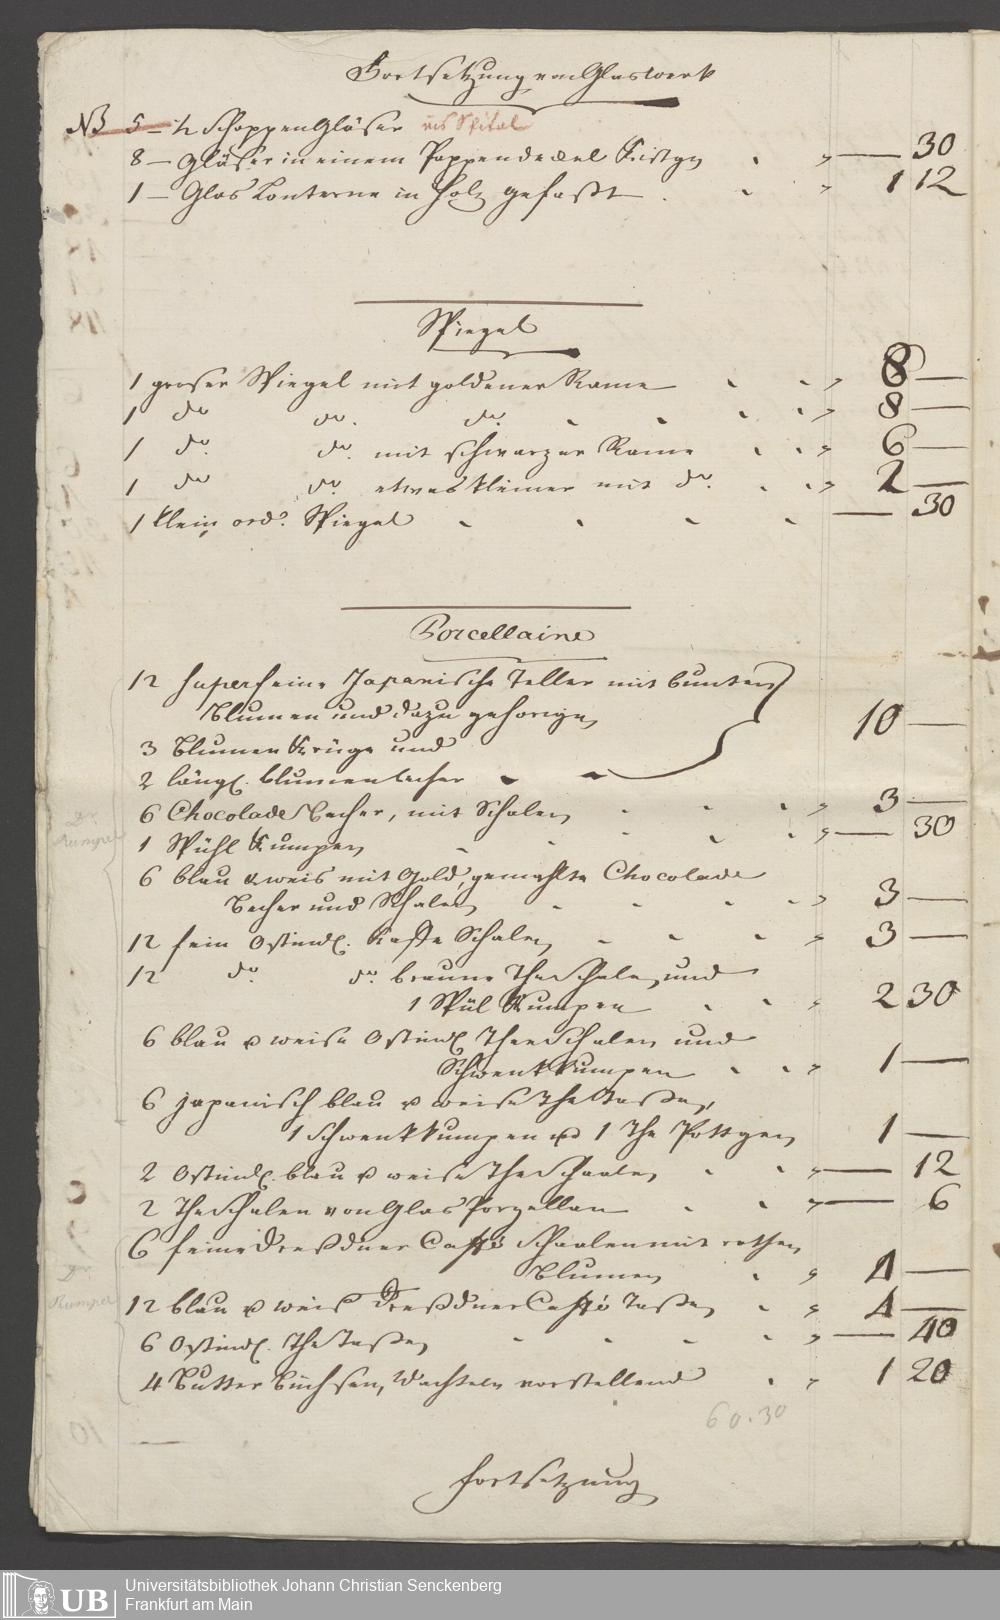 Fortsetzung von Glaswerk
NB 5 – ½ Schoppen Gläser ins Spital
8 – Gläser in einem Pappendeckel Kistgen „ — 30
1 – Glas Lanterne in Holz gefaßt „ 1 12
Spiegel
1 groser Spiegel mit goldener Rame „ 8 —
1 do do. do. „ 8 —
1 do. do. mit schwarzer Rame „ 6 —
1 do do. etwas kleiner mit do. „ 2 —
1 klein ord. Spiegel — 30
Porcellaine
12 superfeine Japanische Teller mit bunten
Blumen und dazu gehorigen
3 Blumen Krüge und 10 —
2 längl. blumenbecher
6 Chocolade Becher, mit Schalen „ 3 —
Dr. Rumpel
1 Spühl Kumpen „ — 30
6 blau & weis mit Gold, gemahlte Chocolade
Becher und Schalen „ 3 —
12 fein Ostindl. Kaffe Schalen „ 3 —
12 do. do. braune The Schalen und
1 Spül Kumpen „ 2 30
6 blau u weise Ostindl. Thee Schalen und
Schwenkkumpen „ 1 —
6 japanisch blau u weise The Tassen,
1 Schwenkkumpen und 1 The Pottgen 1 —
2 Ostindl. blau u weise The Schaalen „ — 12
2 The Schalen von Glas Porzellan „ — 6
6 feine Dreßdner Caffé Schaalen mit rothen
Blumen „ 4 —
Dr. Rumpel
12 blau u weis Dreßdner Caffé Tassen „ 4 —
6 Ostindl. The Tassen „ — 40
4 Butter Büchsen, Wachteln vorstellend „ 1 20
60.30
Fortsetzung
UB Universitätsbibliothek Johann Christian Senckenberg
Frankfurt am Main